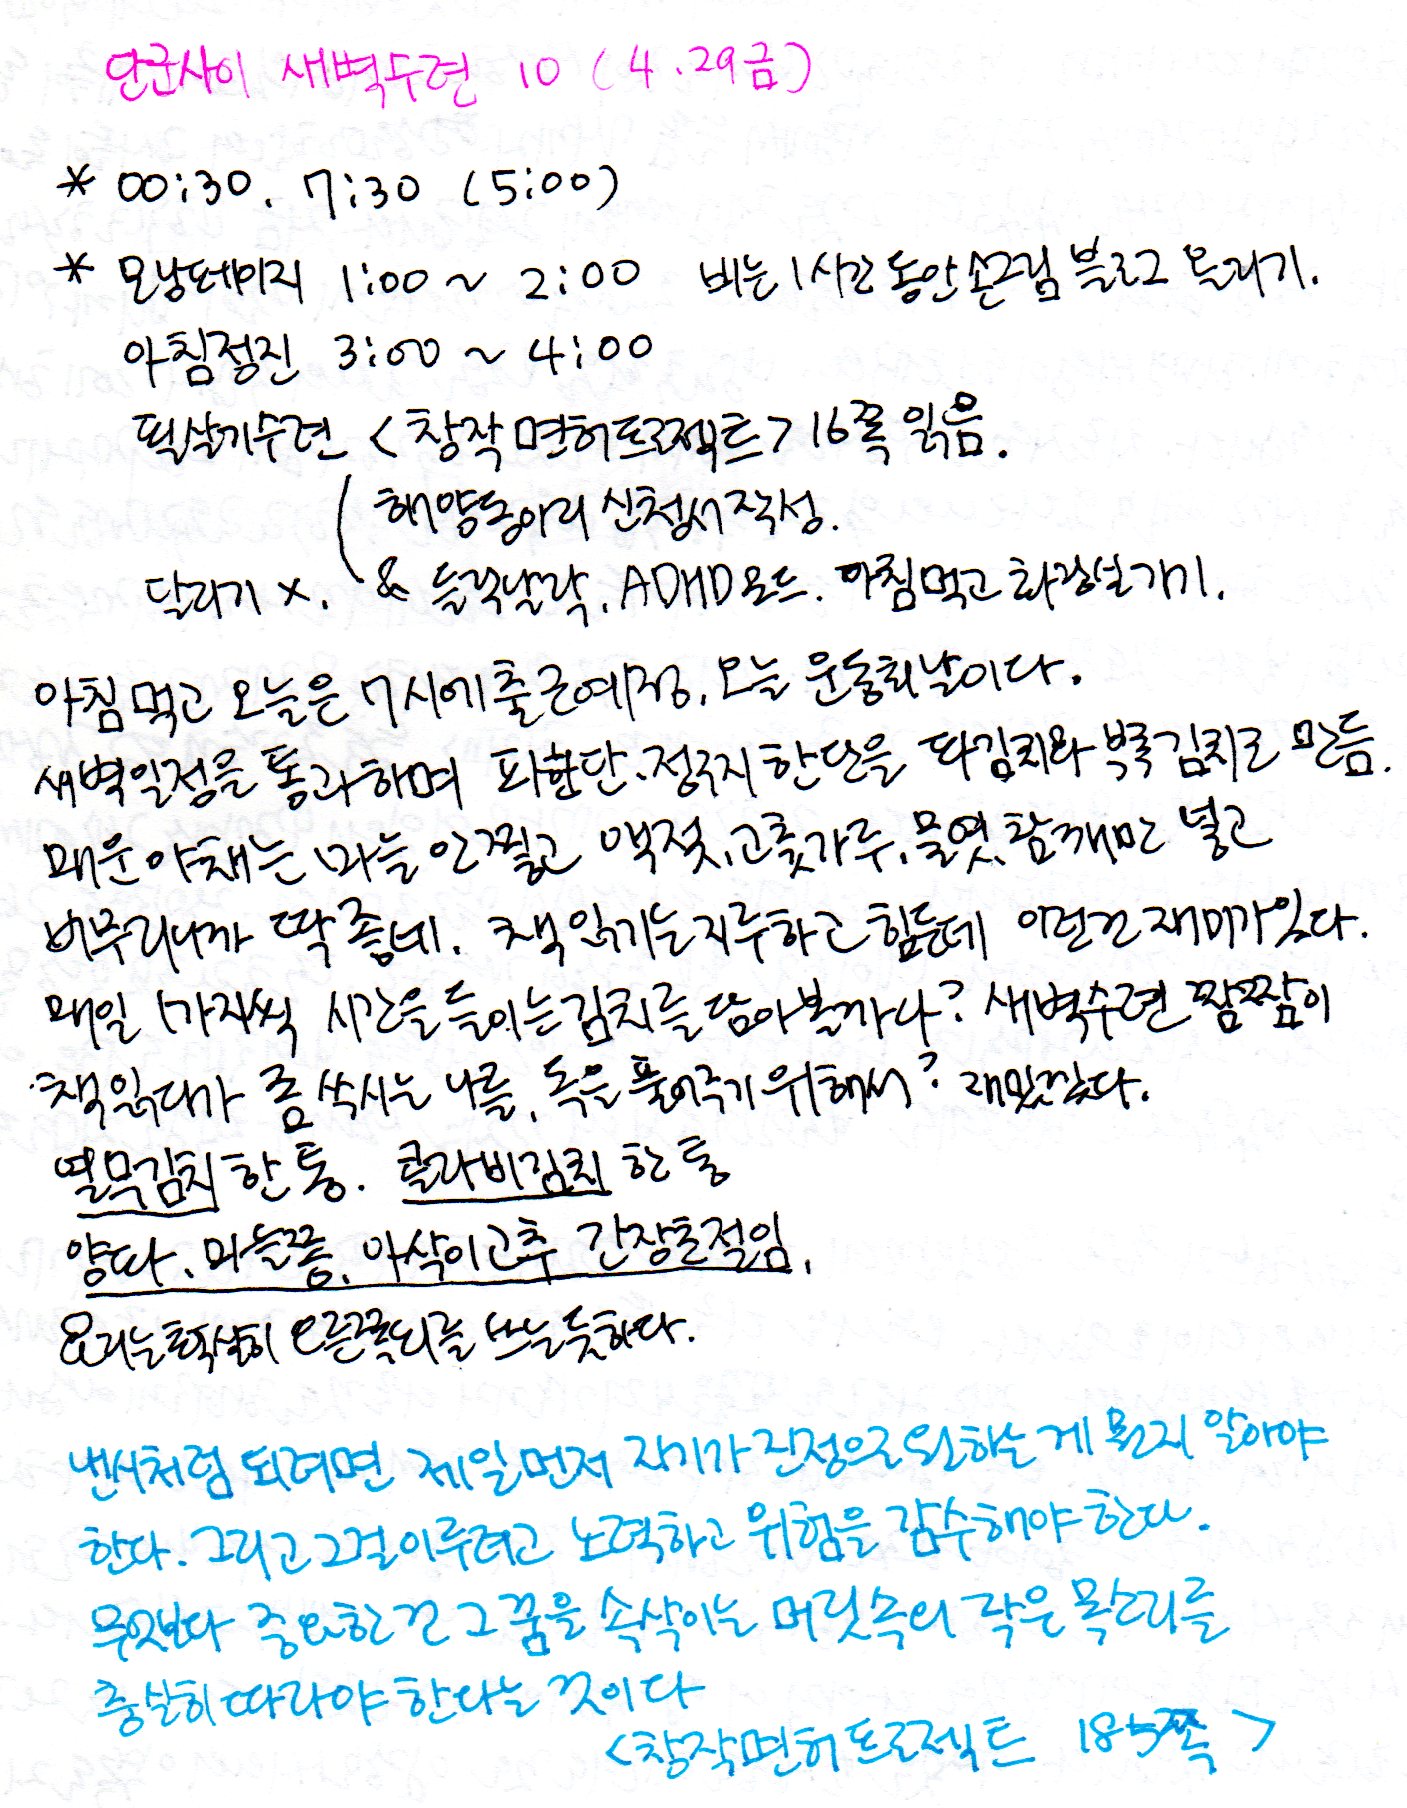 단군사이 새벽수련 10 (4.29금)
* 00:30. 7:30 (5:00)
* 모닝페이지 1:00 ~ 2:00 비는 1시간 동안 손그림 블로그 올리기.
아침정진 3:00 ~ 4:00
필살기수련 <창작면허프로젝트> 16쪽 읽음.
해양동아리 신청서 작성.
달리기 x. & 들락날락. ADHD모드. 아침먹고 화장실가기.
아침먹고 오늘은 7시에 출근예정. 오늘 운동회날이다.
새벽일정을 통과하며 파한단. 정구지 한단을 파김치와 부추김치로 만듬.
매운 야채는 마늘 안 찧고 액젓, 고춧가루, 물엿, 참깨만 넣고
버무리니까 딱 좋네. 책 읽기는 지루하고 힘든데 이런건 재미가있다.
매일 1가지씩 시간을 들이는 김치를 담아볼까나? 새벽수련 짬짬이
책읽다가 좀 쑥시는 나를, 독을 풀어주기 위해서? 재밌겠다.
열무김치 한 통. 콜라비김치 한 통
양파. 마늘쫑. 아삭이고추 간장초절임.
요리는 확실히 오른쪽뇌를 쓰는듯하다.
낸시처럼 되려면 제일먼저 자기가 진정으로 원하는 게 뭔지 알아야
한다. 그리고 그걸 이루려고 노력하고 위험을 감수해야 한다.
무엇보다 중요한 건 그 꿈을 속삭이는 머릿속의 작은 목소리를
충실히 따라야 한다는 것이다
<창작면허프로젝트 185쪽>